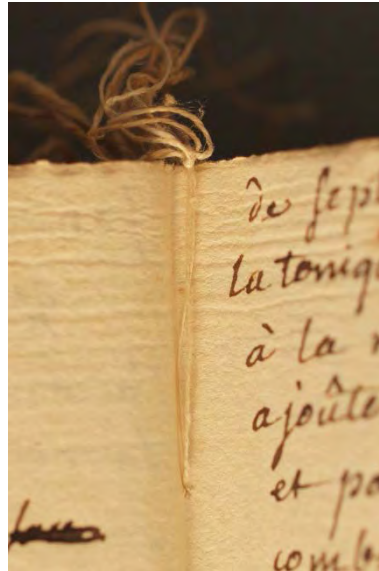 de sept
la toniq
à la
ajoûte
et po
comb